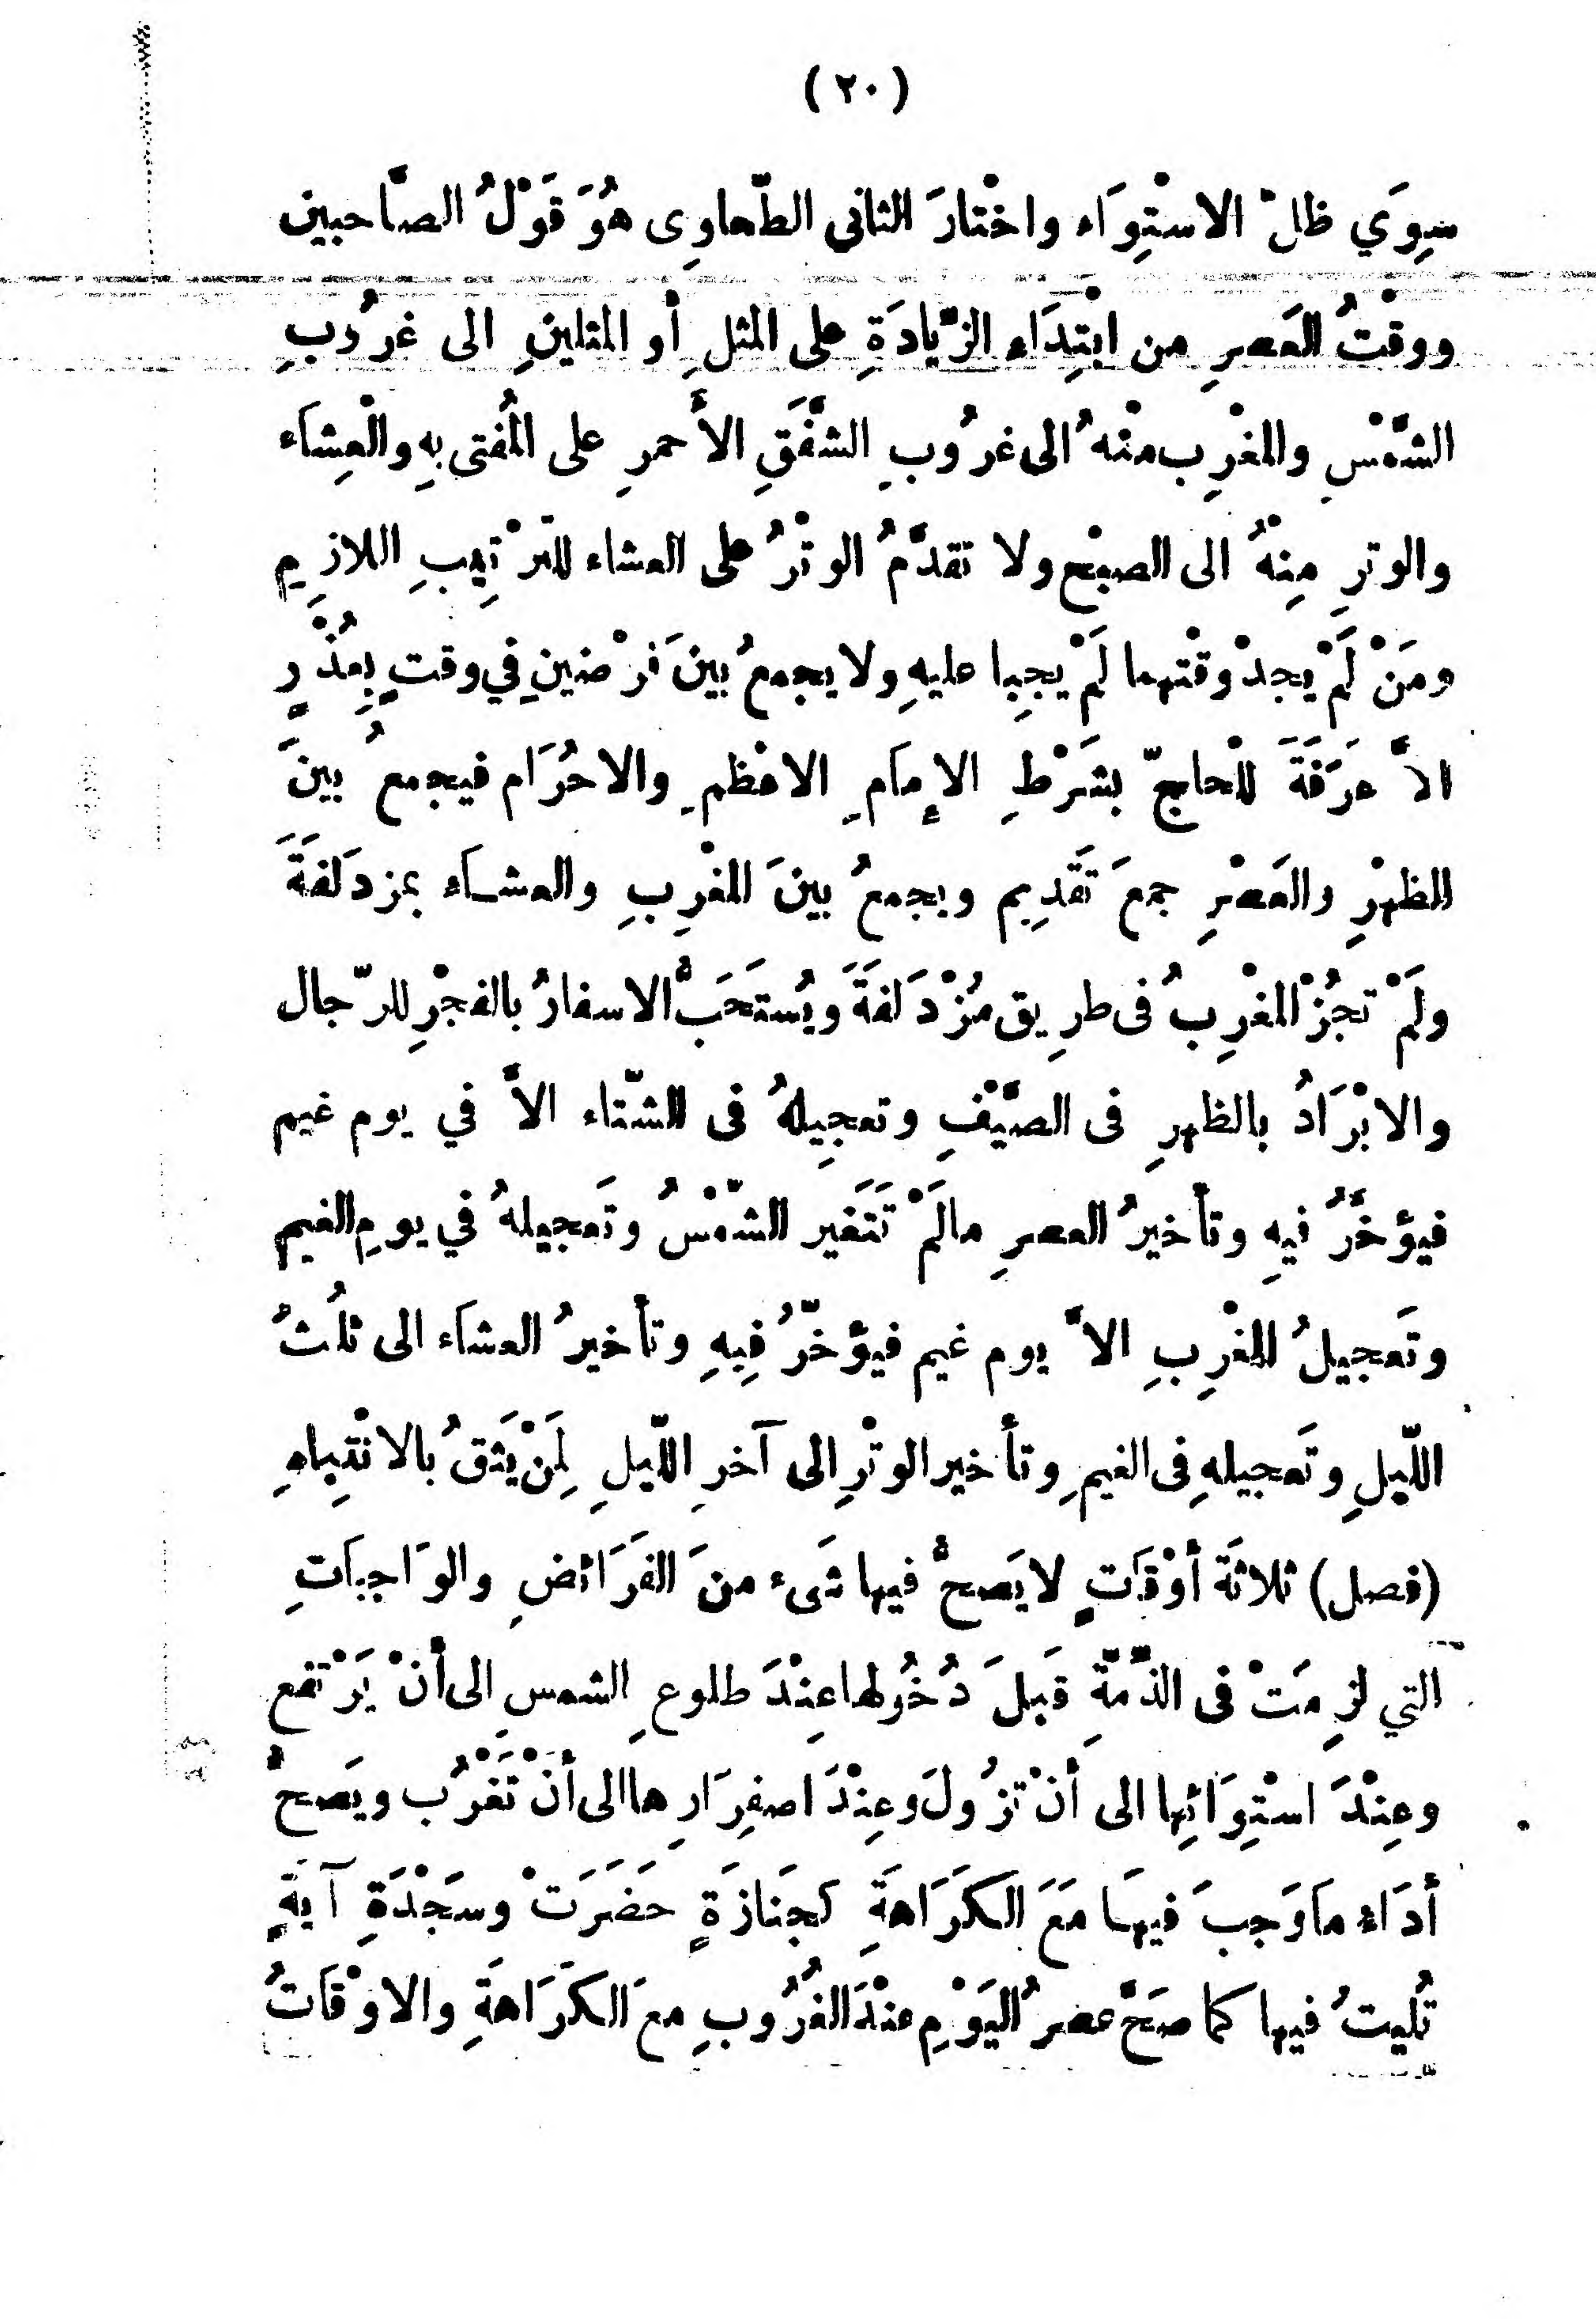 (٢٠)
سِوَي ظلْ الاسْتِوَاء واخْتارَ الثانى الطّحاوِى هُوَ قَوْلُ الصَّاحبين
ووقْتُ العَصرِ من ابْتِدَاء الزّيادَةِ على المثلِ أو المثلينِ الى غرُوبِ
الشَّمْسِ والمغْرِب منْهُ الى غرُوبِ الشَّفَقِ الأَحمرِ على المُفتى بهِ والْعِشاء
والوترِ مِنْهُ الى الصبْح ولا تقدَّمُ الوتْرُ على العشاء للتَرْتِيبِ اللازِمِ
ومَنْ لَمْ يجدْ وقْتهما لَمْ يجِبا عليهِ ولا يجمعُ بينَ فرْضينِ فِي وقتٍ بِعُذْرٍ
الاَّ عَرَفَةَ للْحاجّ بشَرْطِ الإِمَامِ الاعْظمِ والاحْرَام فيجمعُ بينَ
الظهْرِ والعَصْرِ جمعَ تَقَدِيم ويجمعُ بينَ المغْرِبِ والعشاء بمزدَلفَةَ
ولَمْ تجُزْ المغْرِبُ فى طرِيق مُزْدَلفَةَ ويُستَحَبُّ الاسفارُ بالفجْرِ للرّجال
والابْرَادُ بالظهرِ فى الصَّيْفِ وتعجِيلهُ فى الشّتاء الاَّ في يوم غيم
فيؤخَّرُ فيهِ وتأخيرُ العصرِ مالَمْ تَتَغَير الشّمْسُ وتَعجيلهُ في يومِ الغيم
وتَعجيلُ المغْرِبِ الاَّ يوم غيم فيؤخّرُ فِيهِ وتأخيرُ العشاء الى ثلُثُ
اللّيلِ وتَعجيلهِ فى الغيمِ وتأخير الوتْرِ الى آخرِ اللّيلِ لِمَنْ يَثقُ بالانْتِباهِ
(فصل) ثلاثَة أوْقاتٍ لا يَصحُّ فيها شَىء منَ الفَرَائضِ والوَاجباتِ
التي لزِمَتْ فى الذِّمّةِ قَبلَ دُخُولها عِنْدَ طلوعِ الشمسِ الى أنْ يَرْتفع
وعِنْدَ اسْتِوَائِها الى أنْ تزُولَ وعِنْدَ اصفِرَارِها الى أنْ تَغْرُب ويَصحُّ
أدَاء ماوَجبَ فيهَا مَعَ الكَرَاهَةِ كجَنازَةٍ حَضَرَتْ وسَجْدَةِ آيةٍ
تُليتُ فيها كما صَحَّ عصرُ اليَوْمِ عنْدَ الغُرُوبِ معَ الكَرَاهَةِ والاوْقاتُ